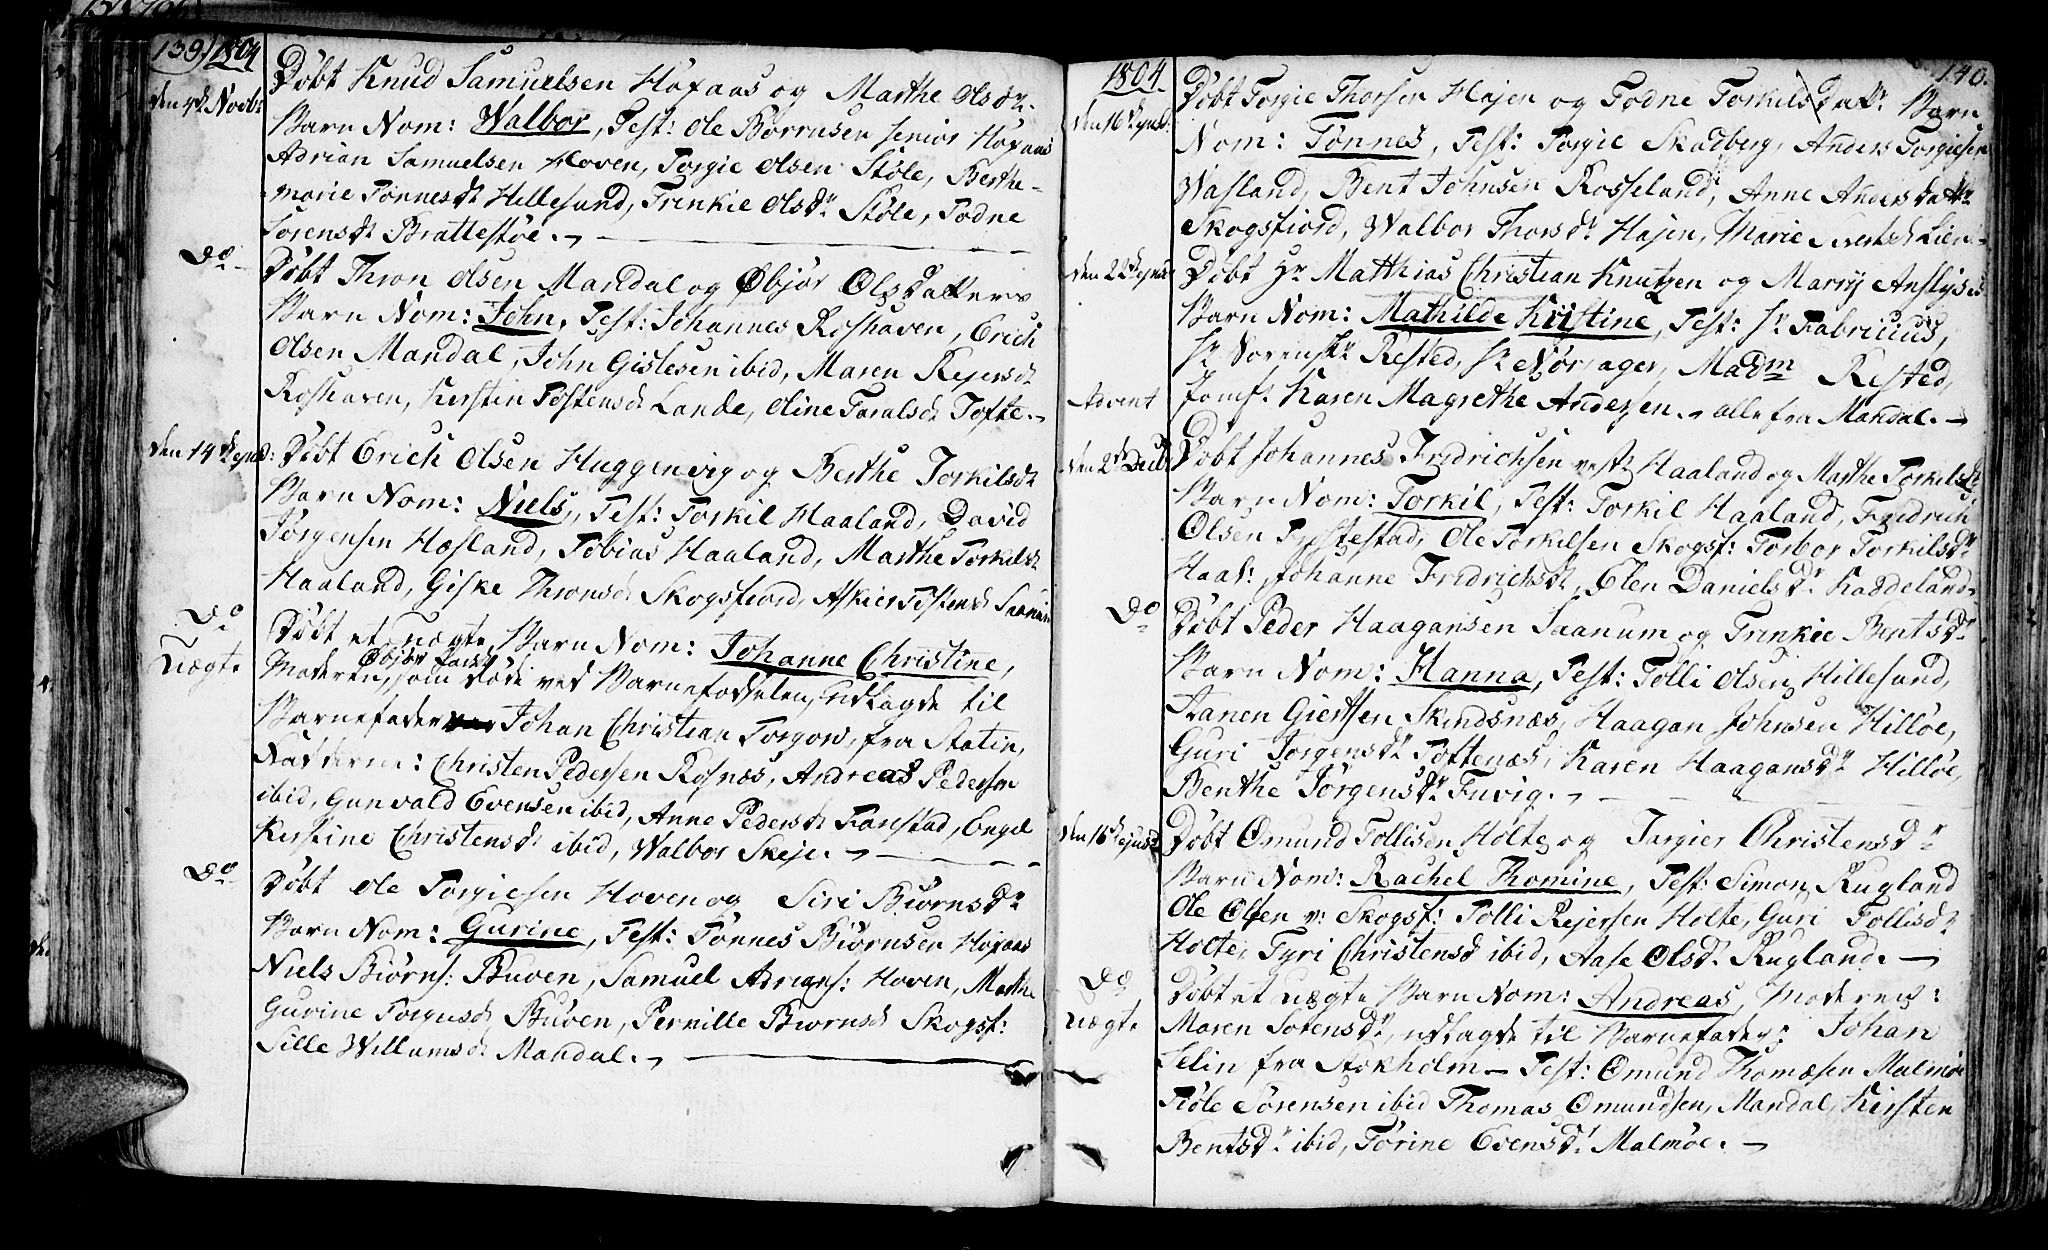 139. 1804
den 4de Novbr
Døbt Knud Samuelsen Høxaas og Marthe Olsdr
Barn Nom: Walbor, Test: Ole Børrusen senior Høxaas
Adrian Samuelsen Hoven, Torgie Olsen Støle, Berthe-
marie Tønnesdr Hillesund, Trenkie Olsdr Støle, Todne
Sørensdr Brattestøe.
Do
Døbt Thron Olsen Mandal og Øbjør Olsdatters
Barn Nom: John, Test: Johannes Roshaven, Erich
Olsen Mandal, John Gislesen ibid, Maren Rejersdr
Roshaven, Kerstin Tostensdr Lande, Oline Taralsdr Tofte.
den 14de ejusd:
Døbt Erich Olsen Huggenvig og Berthe Torkilsdr
Barn Nom: Niels, Test: Torkil Haaland, David
Jørgensen Hæsland, Tobias Haaland, Marthe Torkilsdr
Haaland, Giske Thronsdr Skogsfiord, Askier Tostensdr
Do
Uægte
Døbt et uægte Barn Nom: Johanne Christine,
Moderen, Øbjør som døde ved Barnefødselen, udlagde til
Barnefader Johan Christian Torgow, fra Statin,
Fadderne: Christen Pedersen Rosnæs, Andreas Pedersen
ibid, Gunvald Evensen ibid, Anne Pedersdr Farestad, Engel
Kirstine Christensdr ibid, Walbor Skeje.
Do
Døbt Ole Torgiesen Hoven og Siri Biørnsdr
Barn Nom: Gurine, Test: Tønnes Biørnsen Høxaas
Niels Biørns: Buven, Samuel Adrians: Hoven, Marthe
Gurine Torgusdr Buven, Pernille Biørnsdr Skogsf:
Sille Willumsdr Mandal.
1804
140.
den 16de ejusd:
Døbt Torgie Thorsen Højen og Todne Torkilsdattr Barn
Nom: Tønnes, Test: Torgie Skadberg, Anders Torgiesen
Wasland, Bent Johnsen Rosseland, Anne Andersdattr
Skogsfiord, Walbor Thorsdr Højen, Marie Sivertsdr Lien
den 22de ejusd
Døbt Hr Matthias Christian Knutzen og Marry Anslys's
Barn Nom: Mathilde Kristine, Test: Sr Fabricius,
Sr Sorenskr Rested, Sr Nørjager, Madm Rested,
Jomf: Karen Magrethe Andersen. alle fra Mandal.
Advent
den 2den Decbr
Døbt Johannes Fredrichsen vest: Haaland og Marthe Torkilsdr
Barn Nom: Torkil, Test: Torkil Haaland, Fredrich
Olsen Frøstestad, Ole Torkilsen Skogsf: Torbor Torkilsdr
Haal: Johanne Fredrichsdr, Elen Danielsdr Kaddeland
Do
Døbt Peder Haagansen Saanum og Trenkie Bentsdr
Barn Nom: Hanna, Test: Tolli Olsen Hillesund,
Aanen Giertsen Skindsnæs, Haagan Johnsen Hilløe,
Guri Jørgensdr Toftenæs, Karen Haagansdr Hilløe,
Benthe Jørgensdr Fuvig.
den 16de ejusd:
Døbt Omund Tollisen Holte og Jørgier Christensdr
Barn Nom: Rachel Thomine, Test: Simon Rugland
Ole Olsen v: Skogsf: Tolli Rejersen Holte, Guri Tollisdr
Holte, Tyri Christensd ibid, Aase Olsdr Rugland.
Do
Uægte
Døbt et uægte Barn Nom: Andreas, Moderen:
Maren Sørensdr, udlagde til Barnefader: Johan
Selin fra Stokholm — Test: Omund Thomæsen Malmøe
Tiøle Sørensen ibid Thomas Omundsen, Mandal, Kirsten
Bentsdr ibid, Torine Evensdr Malmøe.